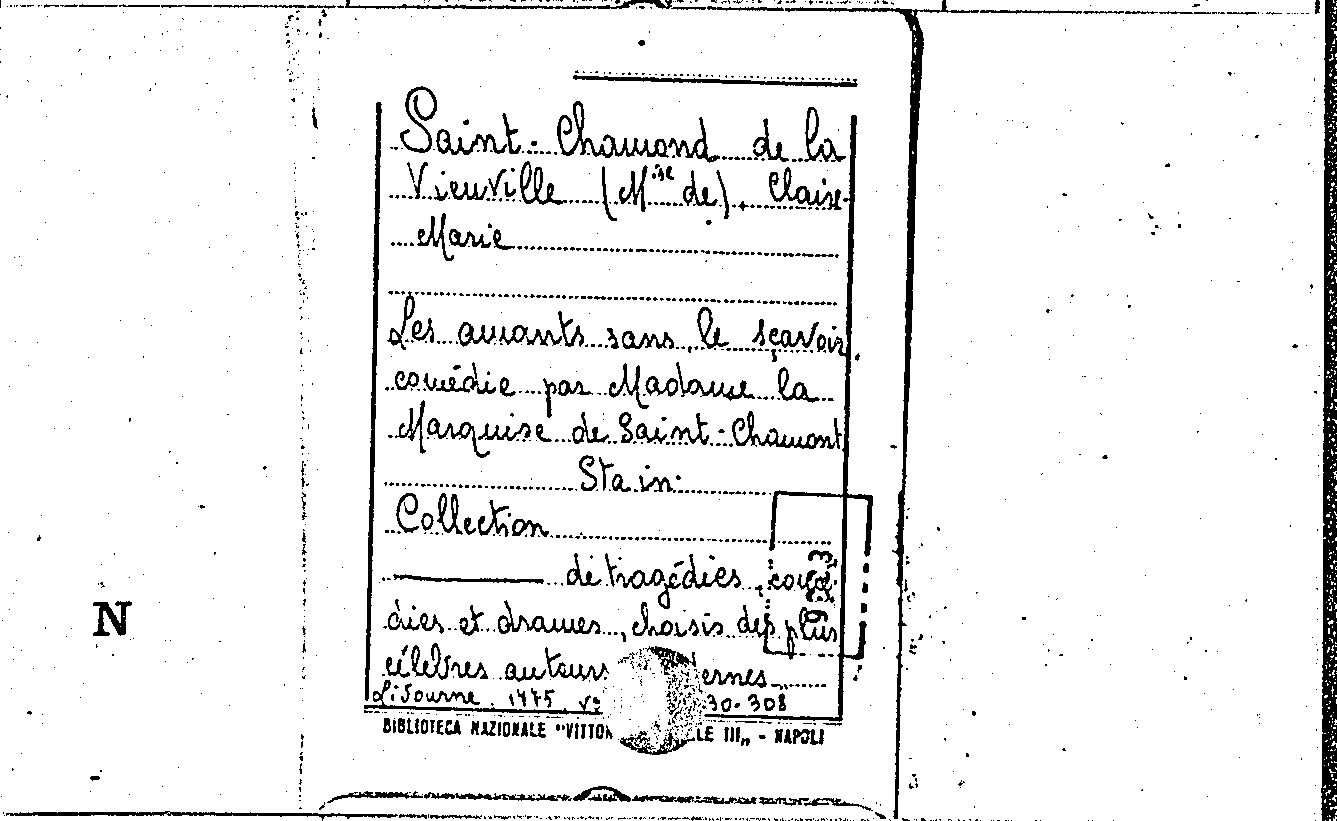 Saint-Chamond de la
Vieuville (M.ise de), Claire-
Marie
Les amants sans le sçavoir,
comédie par Madame la
Marquise de Saint-Chamont
Sta in:
Collection
de tragédies, comé-
dies et drames, choisis des plus
célèbres auteurs
Livourne, 1775, 30-308
BIBLIOTECA NAZIONALE "VITTOR LE III„ - NAPOLI
N